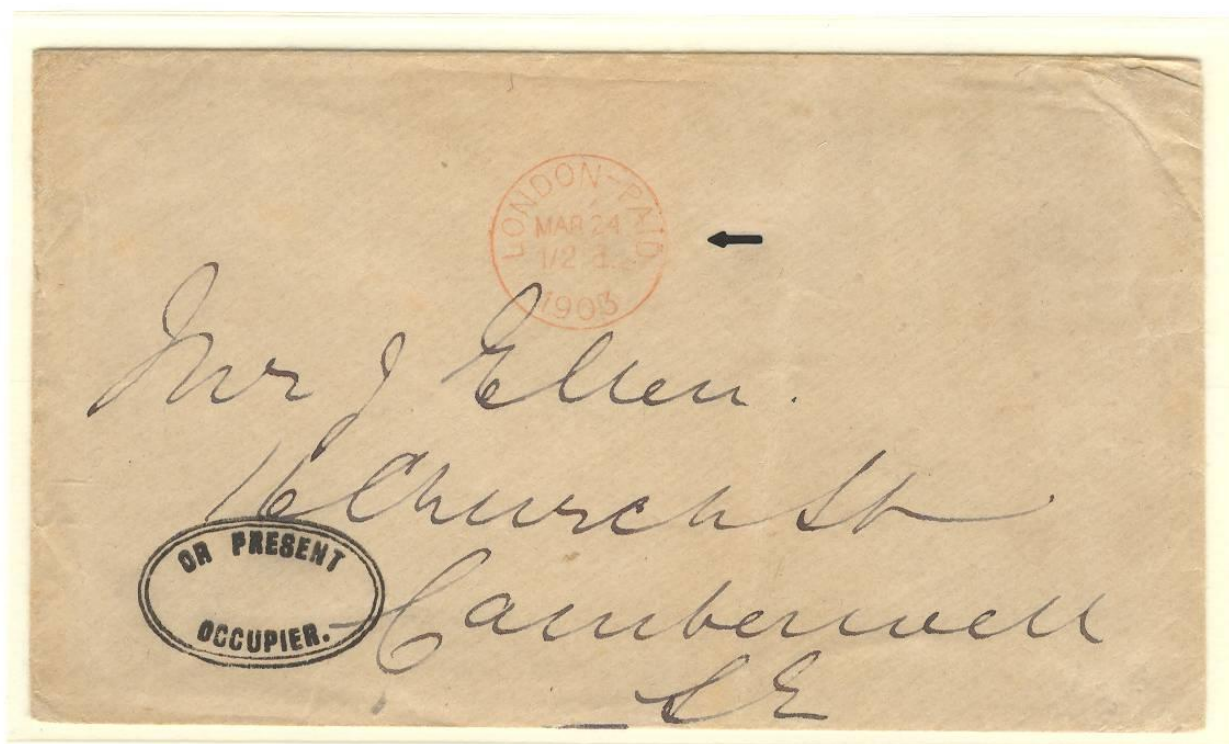 LONDON-PAID
MAR 24
1903
Mr J Ellen.
16 Church St
Camberwell
S E
OR PRESENT
OCCUPIER.